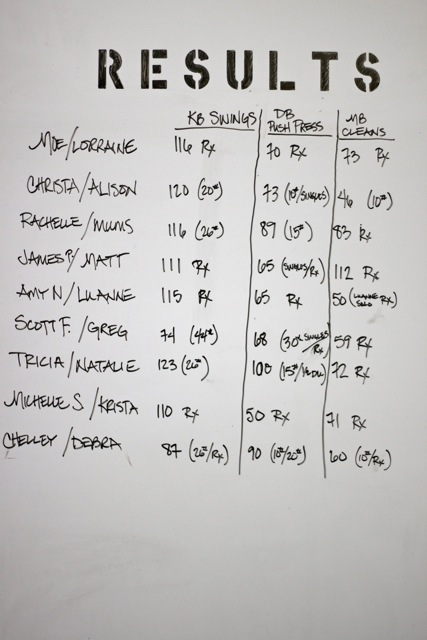 RESULTS
KB SWINGS DB PUSH PRESS MB CLEANS
MOE/LORRAINE 116 Rx 70 Rx 73 Rx
CHRISTA/ALISON 120 (20#) 73 (10#/SINGLES) 46 (10#)
RACHELLE/MUMS 116 (26#) 89 (15#) 83 Rx
JAMES P/MATT 111 Rx 65 (SINGLES/Rx) 112 Rx
AMY N/LUANNE 115 Rx 65 Rx 50 (LUANNE Rx)
SCOTT F./GREG 74 (44#) 68 (30# SINGLES/Rx) 59 Rx
TRICIA/NATALIE 123 (26#) 100 (15#/ 72 Rx
MICHELLE S/KRISTA 110 Rx 50 Rx 71 Rx
CHELLEY/DEBRA 87 (26#/Rx) 90 (10#/20#) 60 (10#/Rx)